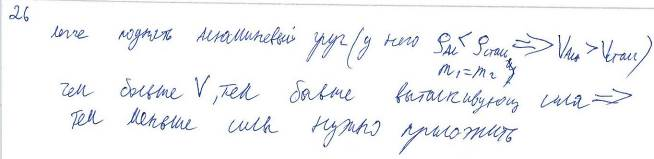 26
легче поднять алюминиевый груз (у него ρ_Al < ρ_стали => V_Ал > V_стали)
m₁ = m₂
чем больше V, тем больше выталкивующ сила =>
тем меньше силы нужно приложить